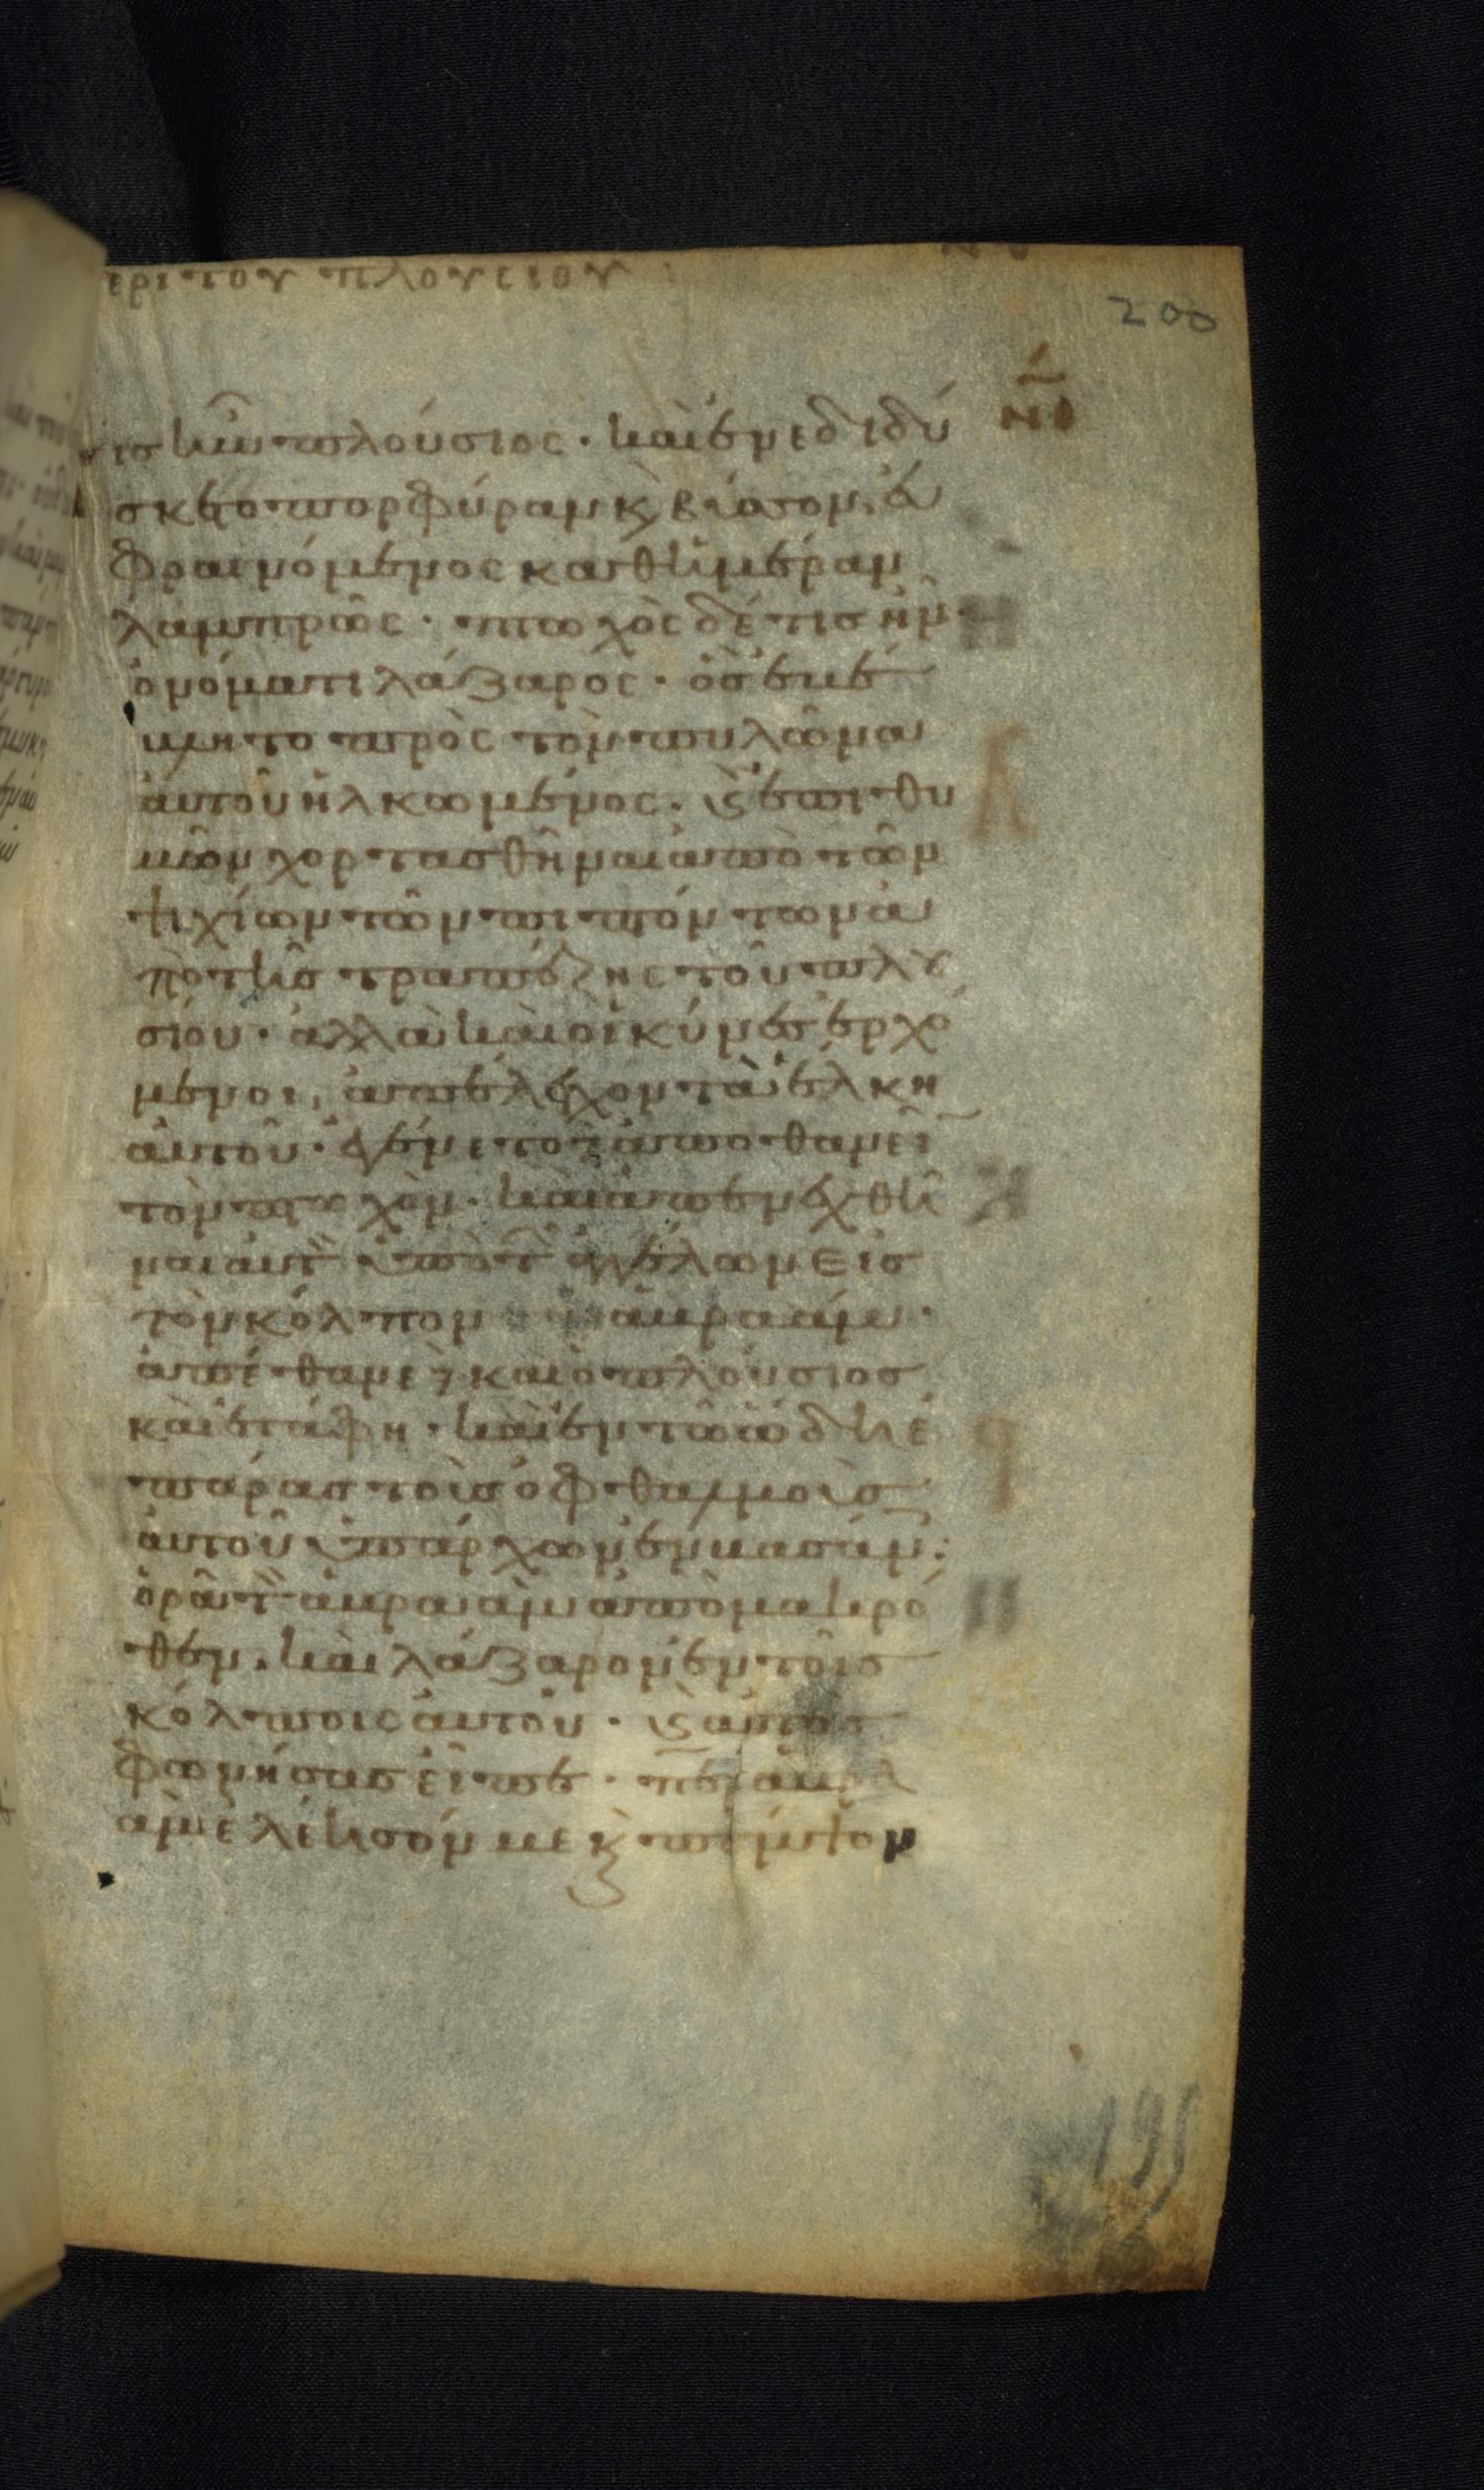 ερι του πλουσιου
200
νθ
τις ἦν πλούσιος · καὶ ἐνεδιδύ
σκετο πορφύραν κ βύσσον, ἐυ
φραινόμενος καθημέραν
λαμπρῶς · πτωχὸς δέ τις ἦν
ὀνόματι λάζαρος · ὃς ἐβέ
βλητο πρὸς τὸν πυλῶνα
ἀυτοῦ ἡλκωμένος · κ ἐπιθυ
μῶν χορτασθῆναι ἀπὸ τῶν
ψιχίων τῶν πιπτόντων ἀ
πὸ τῆς τραπέζης τοῦ πλου
σίου · ἀλλὰ καὶ οἱ κύνες ἐρχό
μενοι, ἀπέλειχον τὰ ἕλκη
ἀυτοῦ · ἐγένετο δὲ ἀποθανεῖ
τὸν πτωχὸν · καὶ ἀπενεχθῆ
ναι ἀυτ ὑπὸ τ ἀγγέλων εἰς
τὸν κόλπον ἀβραάμ ·
ἀπέθανε δὲ καὶ ὁ πλούσιος
καὶ ἐτάφη · καὶ ἐν τῶ ἅδη ἐ
πάρας τοὺς ὀφθαλμοὺς
ἀυτοῦ ὑπάρχων ἐν βασάν ·
ὁρᾶ τ ἀβραὰμ ἀπὸ μακρό
θεν · καὶ λάζαρον ἐν τοῖς
κόλποις ἀυτοῦ · κ ἀυτὸς
φωνήσας εἶπε · περ ἀβρα
ὰμ ἐλέησόν με κ πέμψον
195